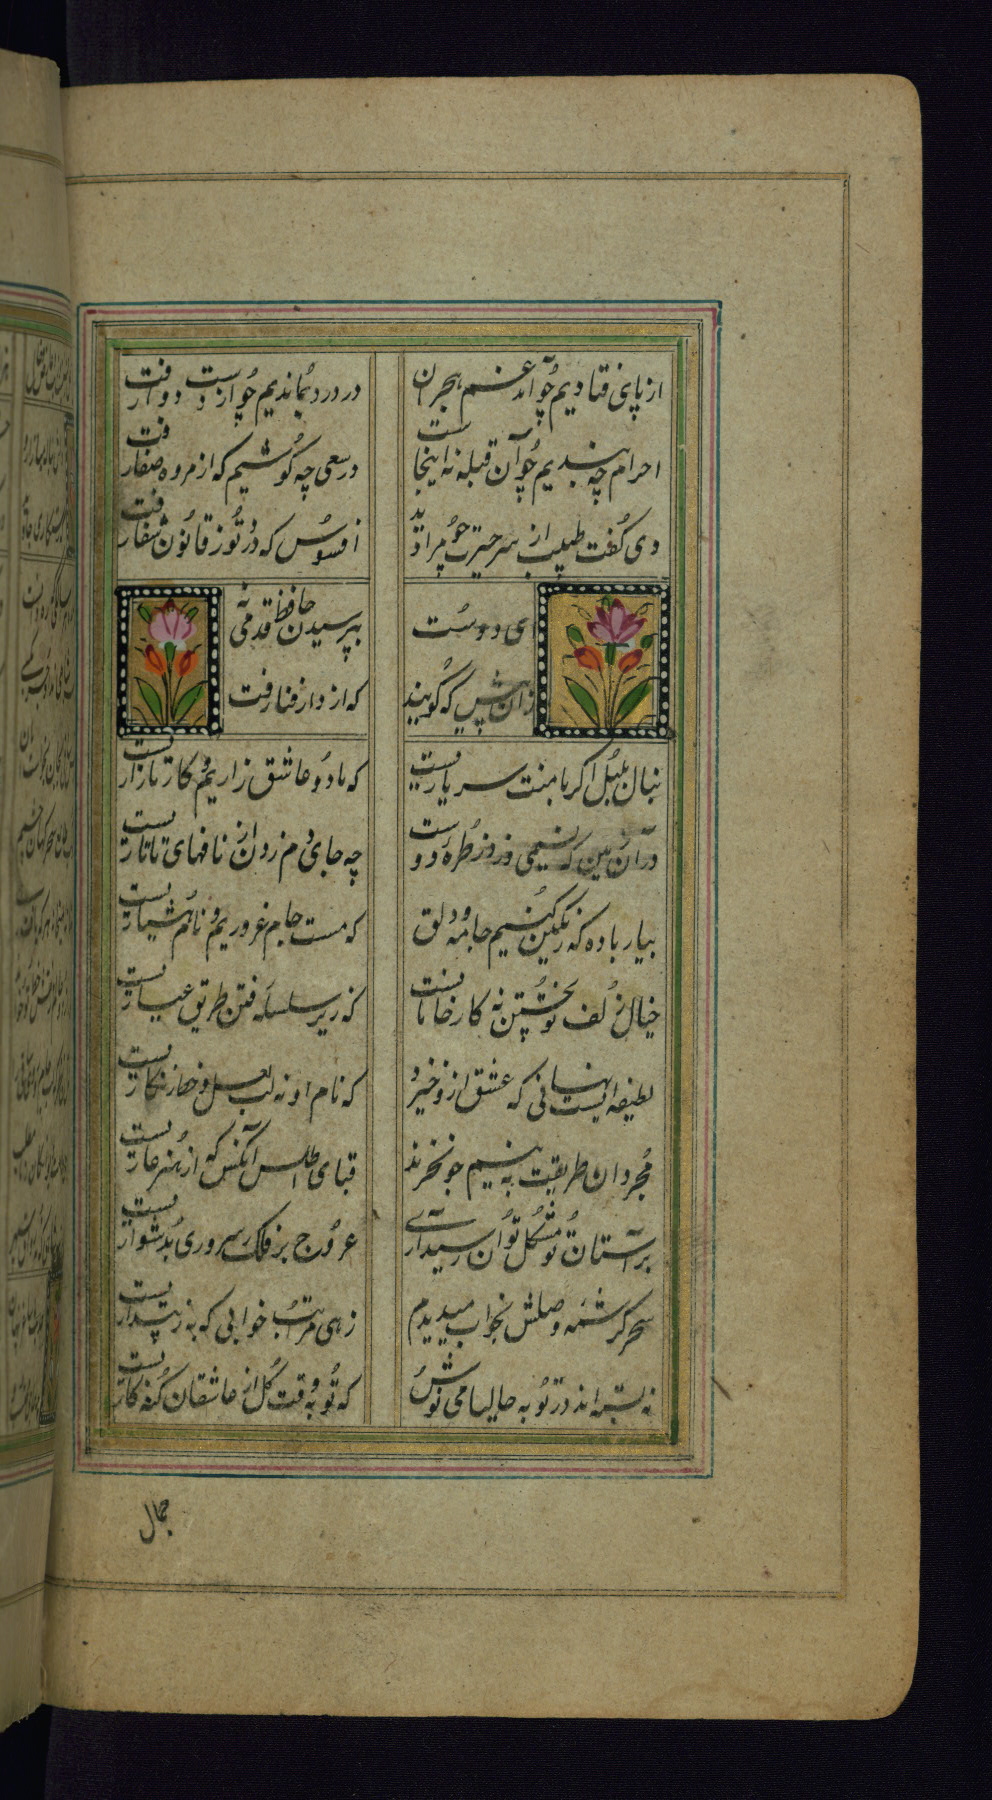 از پای فتادیم چو آمد غم هجران
در درد بماندیم چو از دست دوا رفت
احرام چه بندیم چو آن قبله نه اینجاست
در سعی چه کوشیم که از مروه صفا رفت
دی گفت طبیب از سر حیرت چو مرا دید
افسوس که درد تو ز قانون شفا رفت
ای دوست
بپرسیدن حافظ قدمی نه
زان پیش که گویند
که از دار فنا رفت
بنال بلبل اگر با منت سر یاریست
که ما دو عاشق زاریم و کار ما زاریست
در آن زمین که نسیمی وزد ز طره دوست
چه جای دم زدن از نافهای تاتاریست
بیار باده که رنگین کنیم جامه دلق
که مست جام غروریم و نام هشیاریست
خیال زلف تو پختن نه کار خامانست
که زیر سلسله رفتن طریق عیاریست
لطیفه ایست نهانی که عشق ازو خیزد
که نام او نه لب لعل و خط زنگاریست
مجردان طریقت به نیم جو نخرند
قبای اطلس آنکس که از هنر عاریست
بر آستان تو مشکل توان رسید آری
عروج بر فلک سروری بدشواریست
سحر کرشمه وصلش بخواب میدیدم
زهی مراتب خوابی که به ز بیداریست
نه بسته اند در توبه حالیا می نوش
که توبه وقت گل از عاشقان کنه کاریست
جمال